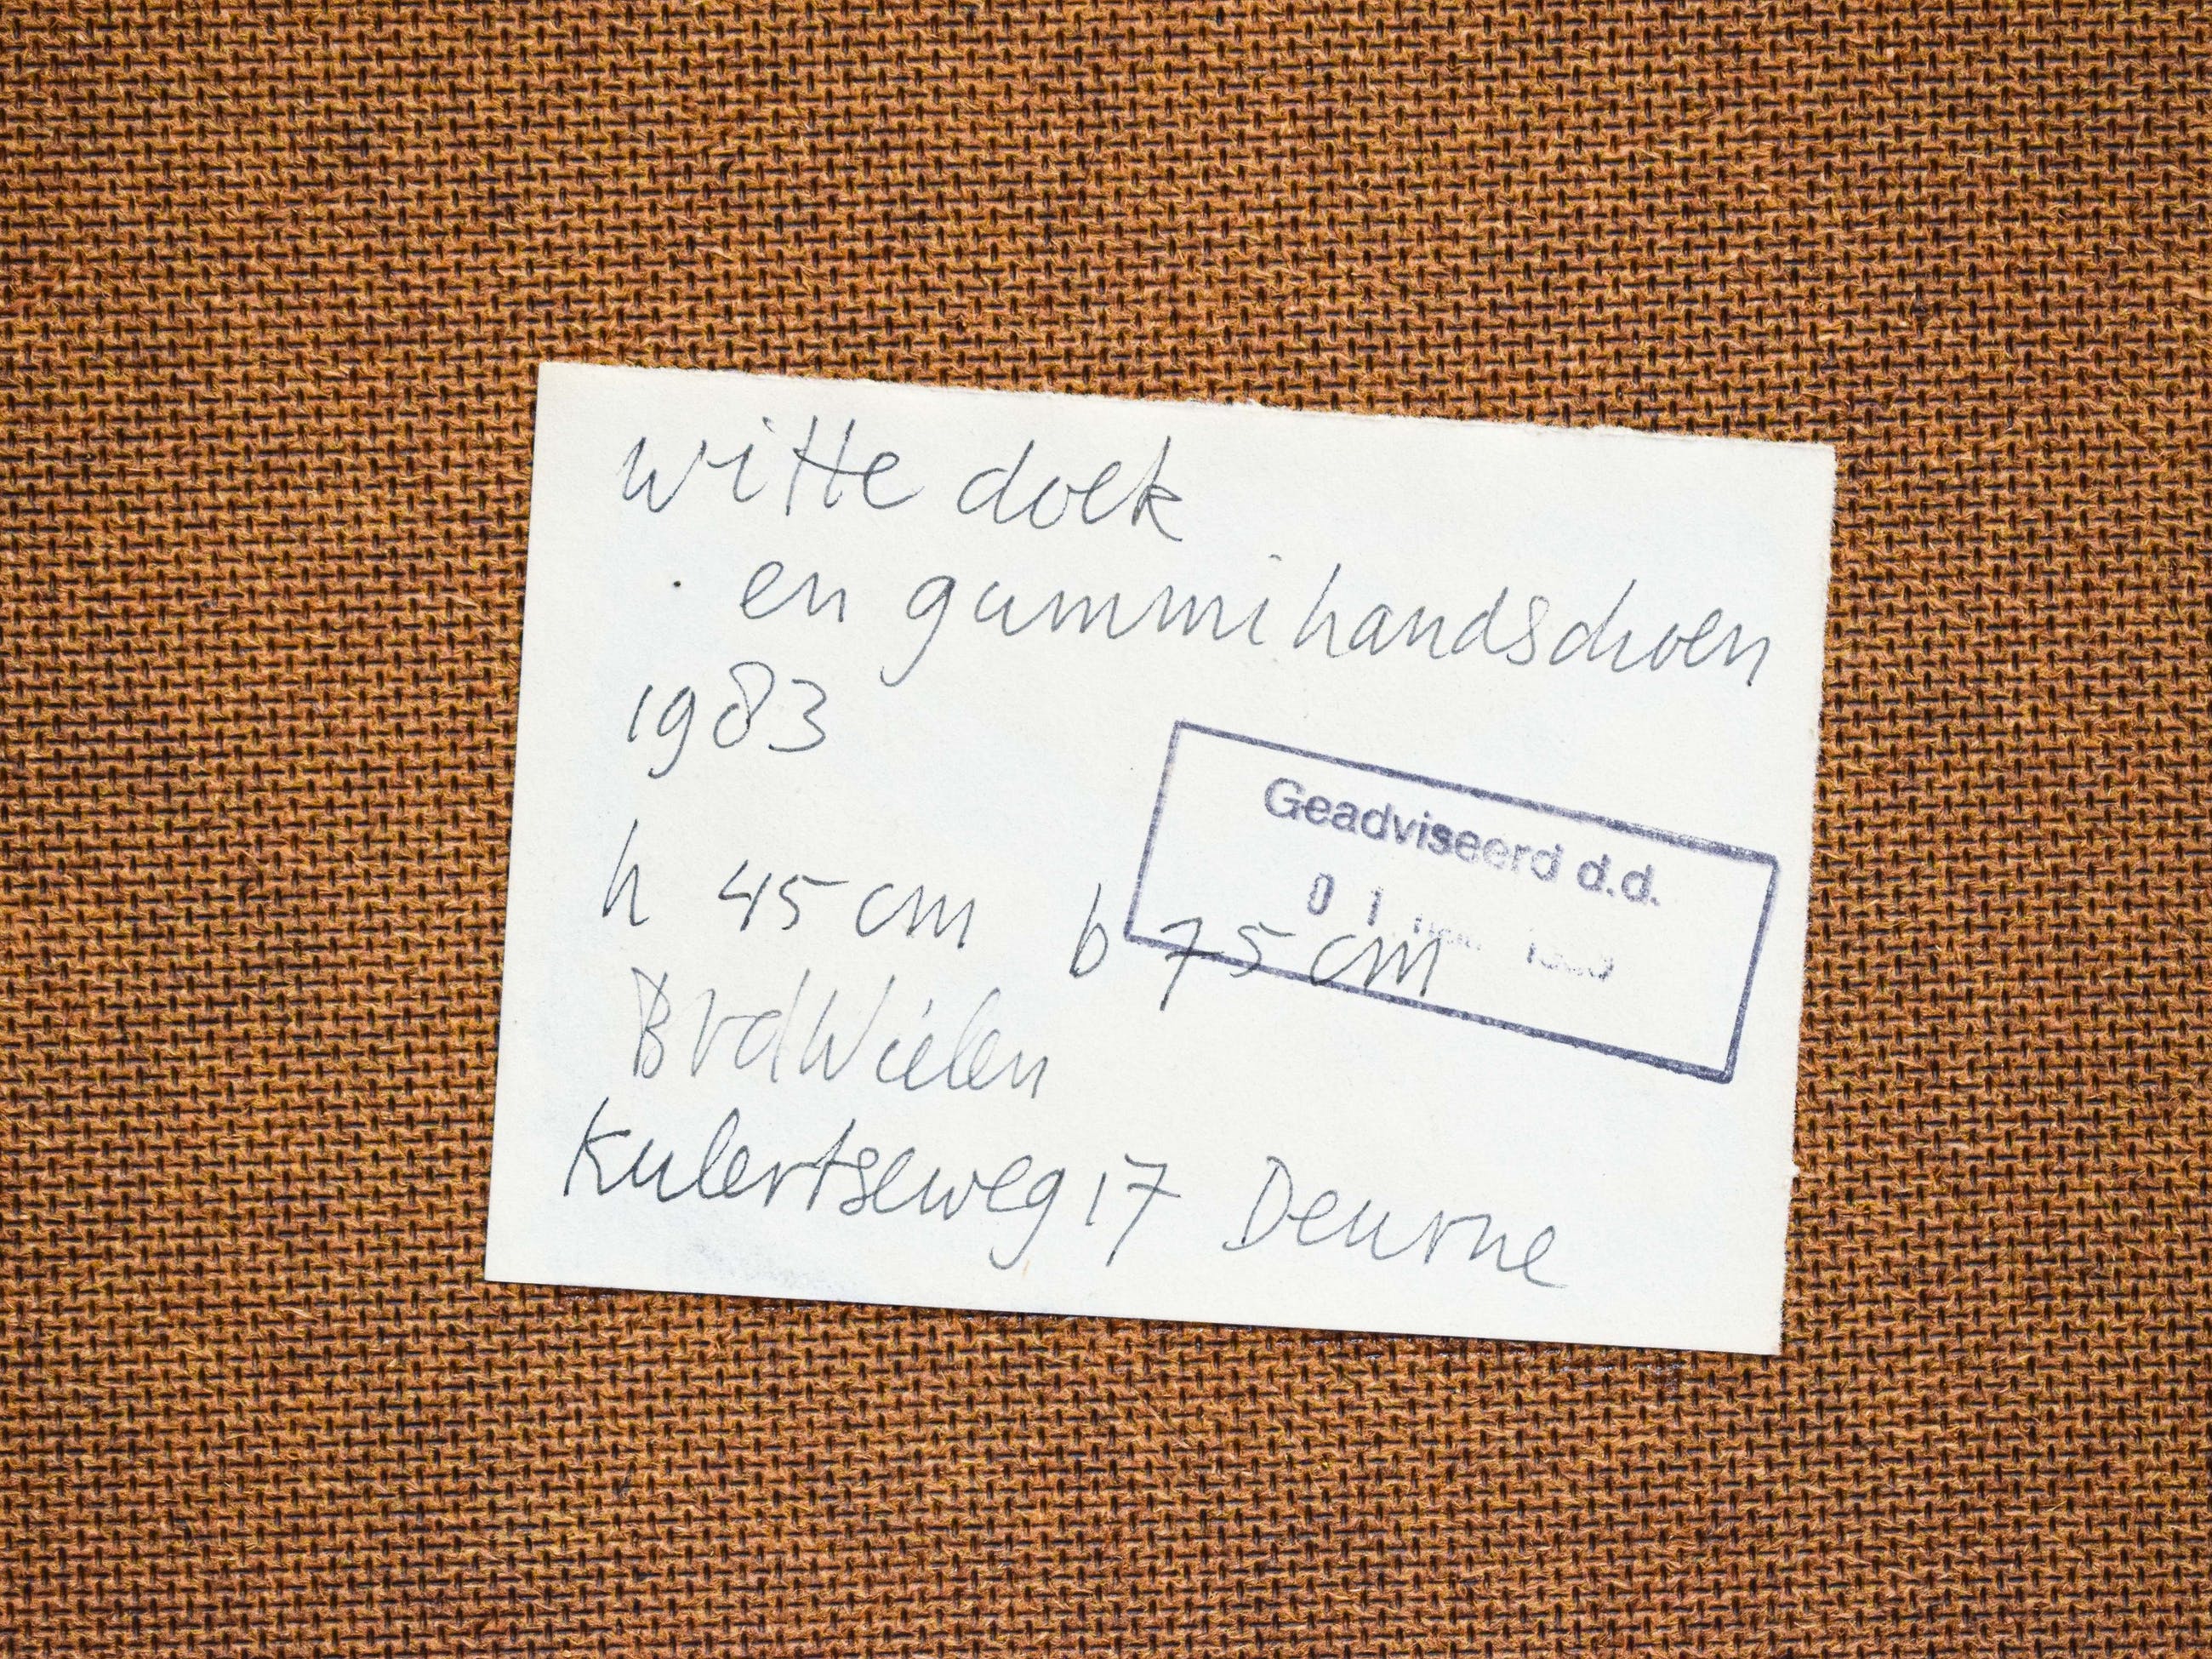 witte doek
en gummihandschoen
1983
Geadviseerd d.d.
0 1
h 45 cm b 75 cm
BvdWielen
Kulertseweg 17 Deurne